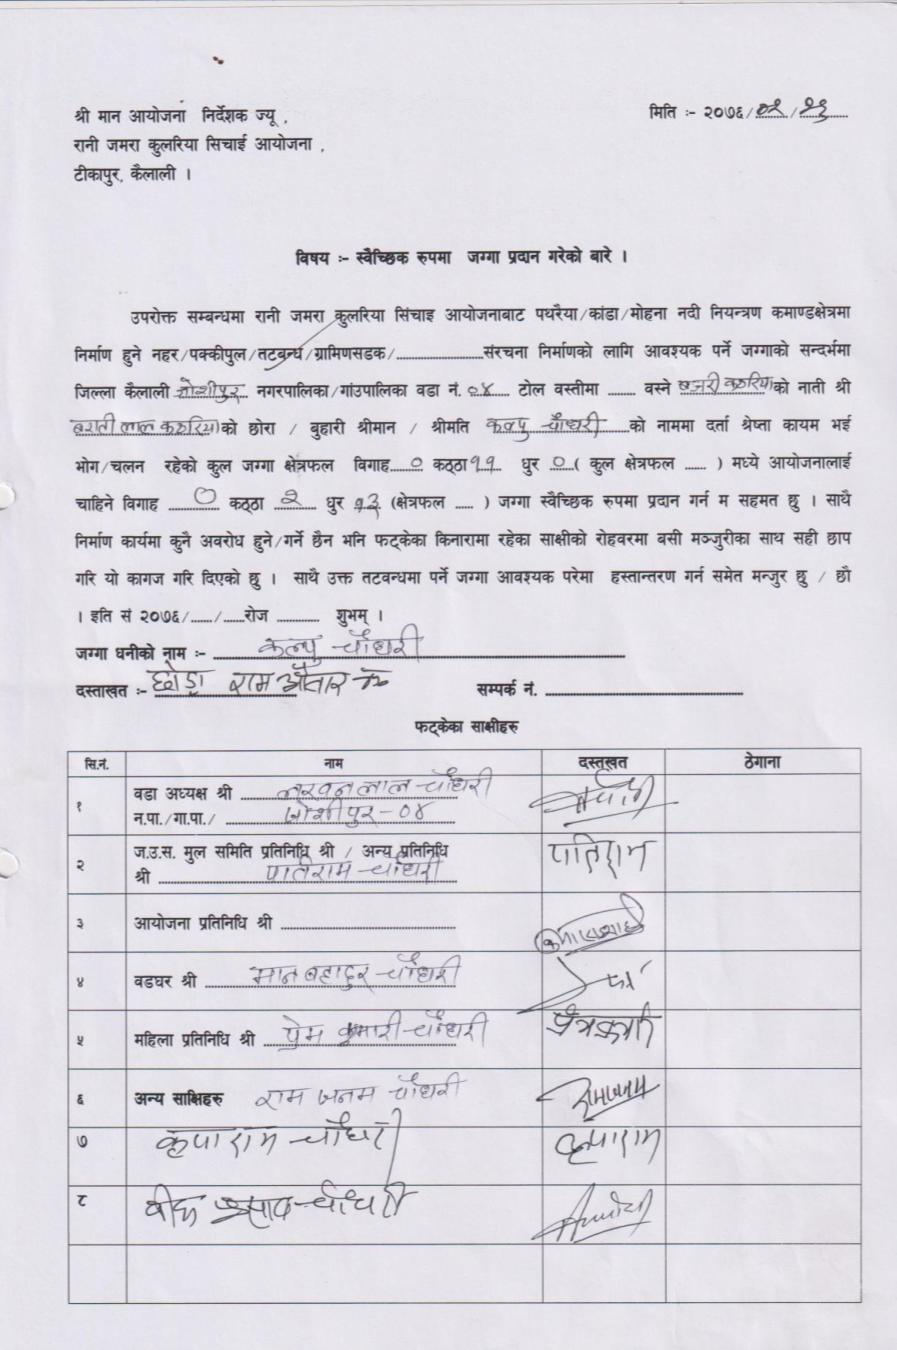 श्री मान आयोजना निर्देशक ज्यू ,
मिति :- २०७६/०२/२६
रानी जमरा कुलरिया सिचाई आयोजना ,
टीकापुर, कैलाली ।
विषय :- स्वैच्छिक रुपमा जग्गा प्रदान गरेको बारे ।
उपरोक्त सम्बन्धमा रानी जमरा कुलरिया सिंचाइ आयोजनाबाट पथरैया/कांडा/मोहना नदी नियन्त्रण कमाण्डक्षेत्रमा
निर्माण हुने नहर/पक्कीपुल/तटबन्ध/ग्रामिणसडक/....................संरचना निर्माणको लागि आवश्यक पर्ने जग्गाको सन्दर्भमा
जिल्ला कैलाली जोशीपुर नगरपालिका/गांउपालिका वडा नं. ०४ टोल वस्तीमा ....... वस्ने कठरिया को नाती श्री
बराती लाल कठरिया को छोरा / बुहारी श्रीमान / श्रीमति कल्पु चौधरी को नाममा दर्ता श्रेष्ता कायम भई
भोग/चलन रहेको कुल जग्गा क्षेत्रफल विगाह ० कठ्ठा ११ धुर ० ( कुल क्षेत्रफल ...... ) मध्ये आयोजनालाई
चाहिने विगाह ० कठ्ठा २ धुर १३ (क्षेत्रफल ..... ) जग्गा स्वैच्छिक रुपमा प्रदान गर्न म सहमत छु । साथै
निर्माण कार्यमा कुनै अवरोध हुने/गर्ने छैन भनि फट्केका किनारामा रहेका साक्षीको रोहवरमा बसी मञ्जुरीका साथ सही छाप
गरि यो कागज गरि दिएको छु । साथै उक्त तटबन्धमा पर्ने जग्गा आवश्यक परेमा हस्तान्तरण गर्न समेत मन्जुर छु / छौ
। इति सं २०७६/...../.....रोज .......... शुभम् ।
जग्गा धनीको नाम :- कल्पु चौधरी
दस्ताखत :- छोरा राम औतार
सम्पर्क नं. ..................................................
फट्केका साक्षीहरु
सि.नं. नाम दस्तखत ठेगाना
१ वडा अध्यक्ष श्री लखन लाल चौधरी
न.पा./गा.पा./ जोशीपुर-०४
२ ज.उ.स. मुल समिति प्रतिनिधि श्री / अन्य प्रतिनिधि
श्री पतिराम चौधरी पतिराम
३ आयोजना प्रतिनिधि श्री ..........................................
४ वडघर श्री मान बहादुर चौधरी
५ महिला प्रतिनिधि श्री प्रेम कुमारी चौधरी
६ अन्य साक्षिहरु राम जनम चौधरी रामजनम
७ कृपा राम चौधरी कृपाराम
८ प्रसाद चौधरी